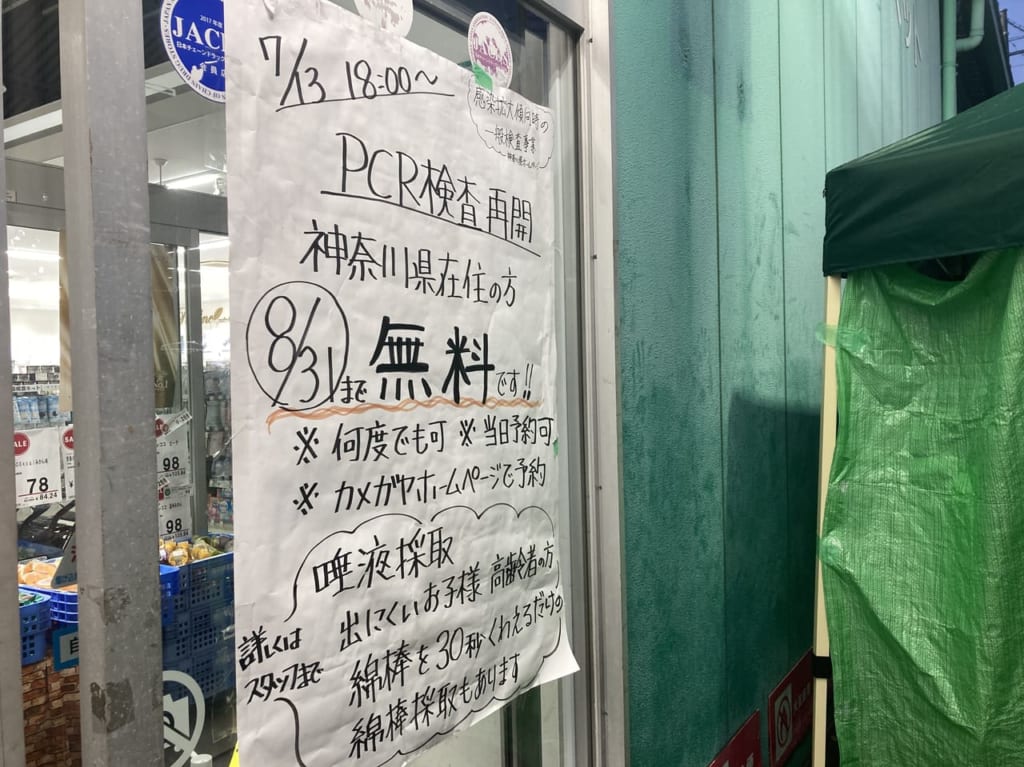 2017年度
JACDS
日本チェーンドラッグ
会員店
7/13 18:00～
感染拡大傾向時の
一般検査事業
PCR検査再開
神奈川県在住の方
8/31まで無料です!!
※何度でも可 ※当日予約可
※カメガヤホームページで予約
唾液採取
出にくいお子様 高齢者の方
綿棒を30秒くわえるだけの
綿棒採取もあります
詳しくは
スタッフまで
SALE
78
84.24
98
98
自